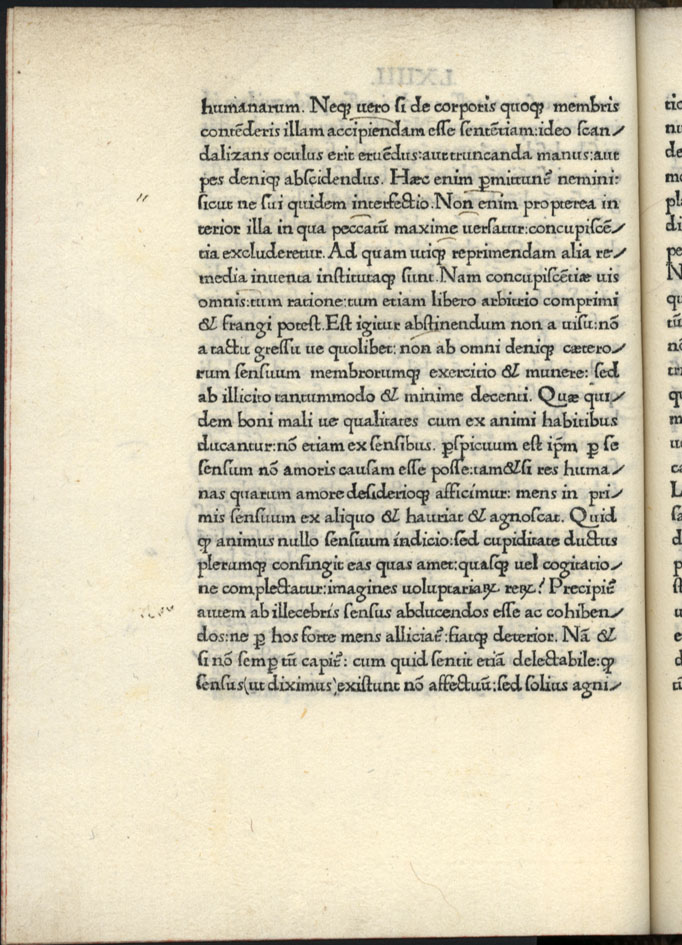 humanarum. Neqꝫ uero si de corporis quoqꝫ membris
contēderis illam accipiendam esse sentētiam:ideo scan⸗
dalizans oculus erit eruēdus:aut truncanda manus:aut
pes deniqꝫ abscidendus. Hæc enim ꝑmittunt᷑ nemini:
sicut ne sui quidem interfectio.Non enim propterea in
terior illa in qua peccatū maxime uersatur:concupiscē⸗
tia excluderetur. Ad quam utiqꝫ reprimendam alia re⸗
media inuenta institutaqꝫ sunt. Nam concupiscētiæ uis
omnis:tum ratione:tum etiam libero arbitrio comprimi
& frangi potest.Est igitur abstinendum non a uisu:nō
a tactu gressu ue quolibet: non ab omni deniqꝫ cætero⸗
rum sensuum membrorumqꝫ exercitio & munere: sed
ab illicito tantummodo & minime decenti. Quæ qui⸗
dem boni mali ue qualitates cum ex animi habitibus
ducantur:nō etiam ex sensibus. ꝑspicuum est ip̄m ꝑ se
sensum nō amoris causam esse posse:tam&si res huma⸗
nas quarum amore desiderioqꝫ afficimur: mens in pri⸗
mis sensuum ex aliquo & hauriat & agnoscat. Quid
ꝙ animus nullo sensuum indicio:sed cupiditate ductus
plerumqꝫ confingit eas quas amet:quasqꝫ uel cogitatio⸗
ne complectatur:imagines uoluptariaꝝ reꝝ? Precipiēt᷑
autem ab illecebris sensus abducendos esse ac cohiben⸗
dos:ne ꝑ hos forte mens alliciat᷑:fiatqꝫ deterior. Nā &
si nō semꝑ tū capit᷑: cum quid sentit etiā delectabile:ꝙ
sensus(ut diximus)existunt nō affectuū:sed solius agni⸗